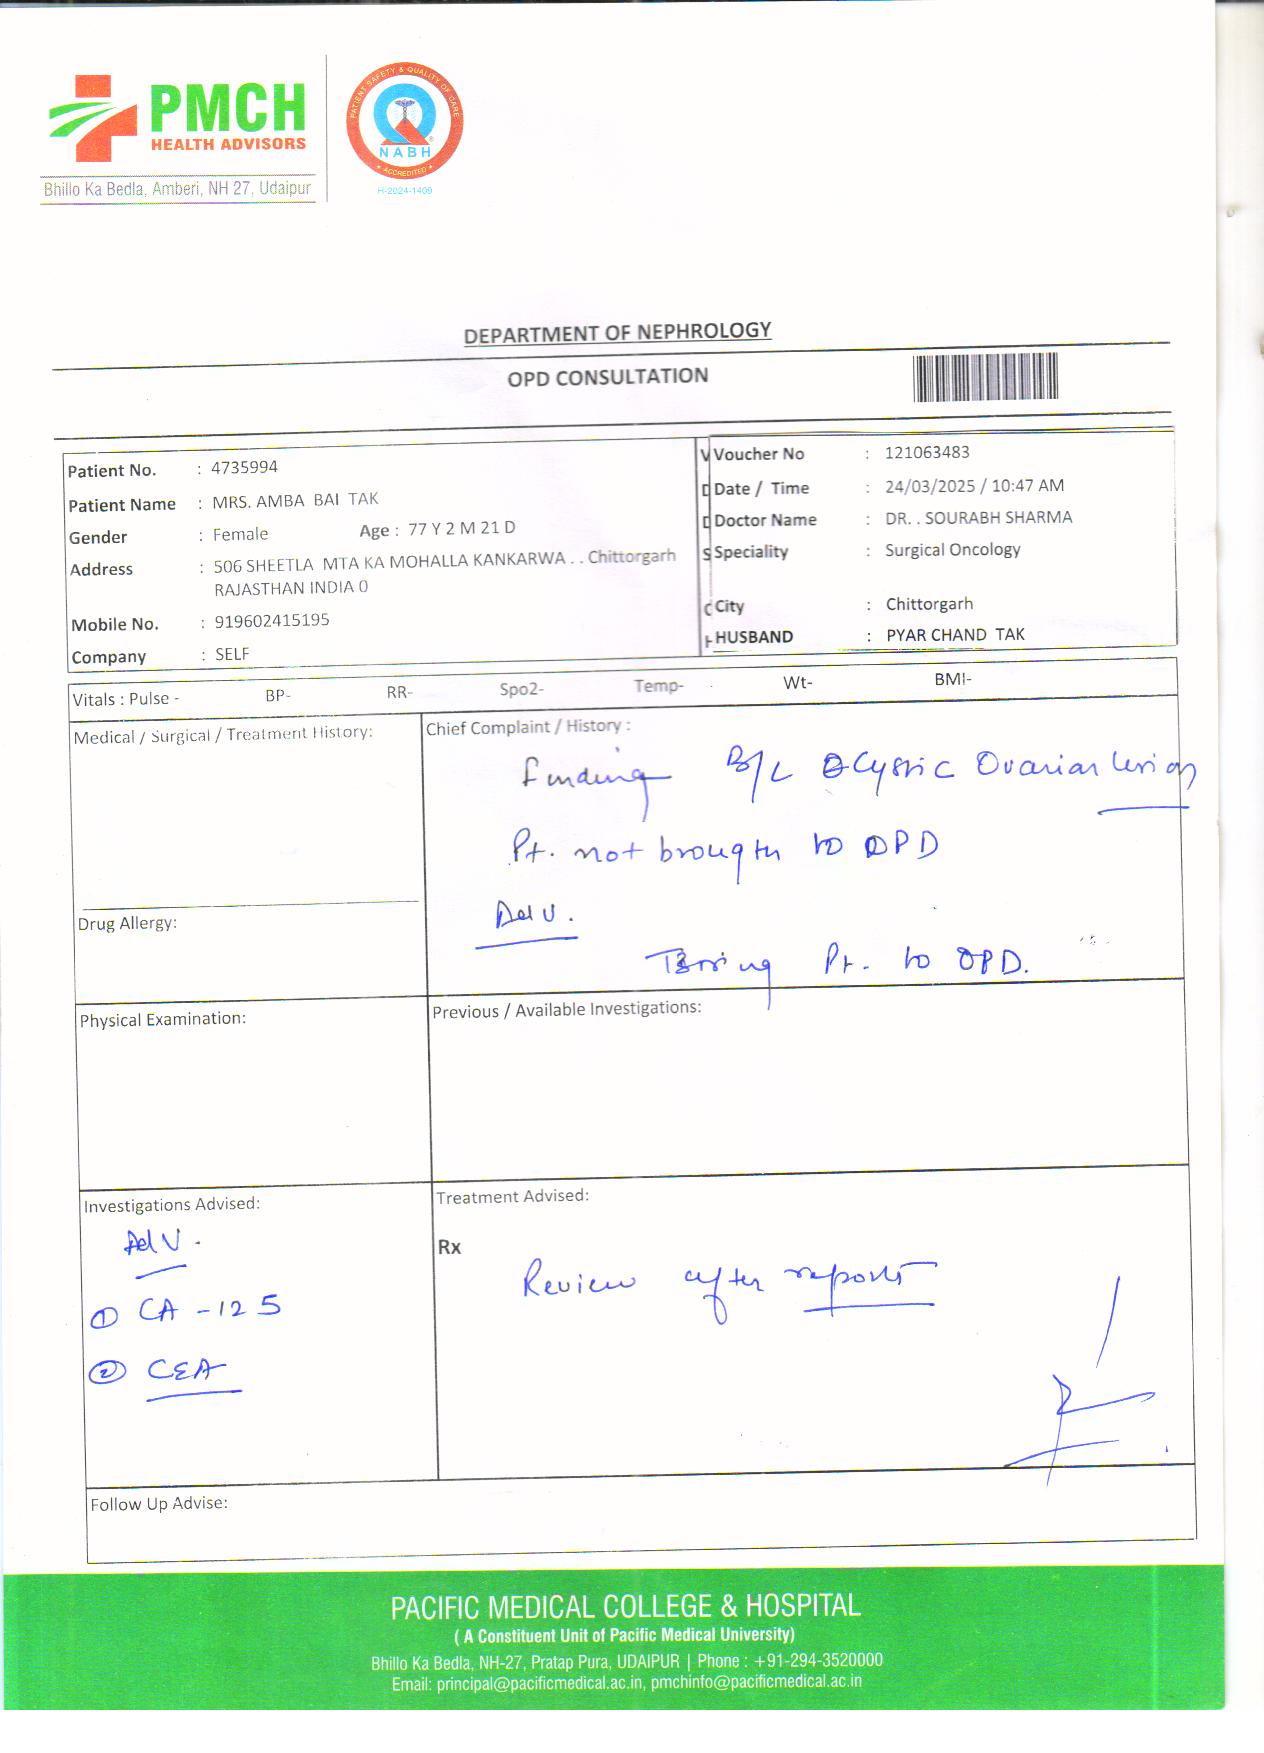 PMCH
HEALTH ADVISORS
Bhillo Ka Bedla, Amberi, NH 27, Udaipur
PATIENT SAFETY & QUALITY OF CARE
NABH
ACCREDITED
H-2024-1409
DEPARTMENT OF NEPHROLOGY
OPD CONSULTATION
Patient No. : 4735994
Patient Name : MRS. AMBA BAI TAK
Gender : Female Age : 77 Y 2 M 21 D
Address : 506 SHEETLA MTA KA MOHALLA KANKARWA . . Chittorgarh
RAJASTHAN INDIA 0
Mobile No. : 919602415195
Company : SELF
Voucher No : 121063483
Date / Time : 24/03/2025 / 10:47 AM
Doctor Name : DR. . SOURABH SHARMA
Speciality : Surgical Oncology
City : Chittorgarh
HUSBAND : PYAR CHAND TAK
Vitals : Pulse - BP- RR- Spo2- Temp- Wt- BMI-
Medical / Surgical / Treatment History:
Drug Allergy:
Chief Complaint / History :
Finding B/L Cystic Ovarian Lesion
Pt. not brought to OPD
Adv.
Bring Pt. to OPD.
Physical Examination:
Previous / Available Investigations:
Investigations Advised:
Adv.
① CA-125
② CEA
Treatment Advised:
Rx
Review after reports
Follow Up Advise:
PACIFIC MEDICAL COLLEGE & HOSPITAL
( A Constituent Unit of Pacific Medical University)
Bhillo Ka Bedla, NH-27, Pratap Pura, UDAIPUR | Phone : +91-294-3520000
Email: principal@pacificmedical.ac.in, pmchinfo@pacificmedical.ac.in